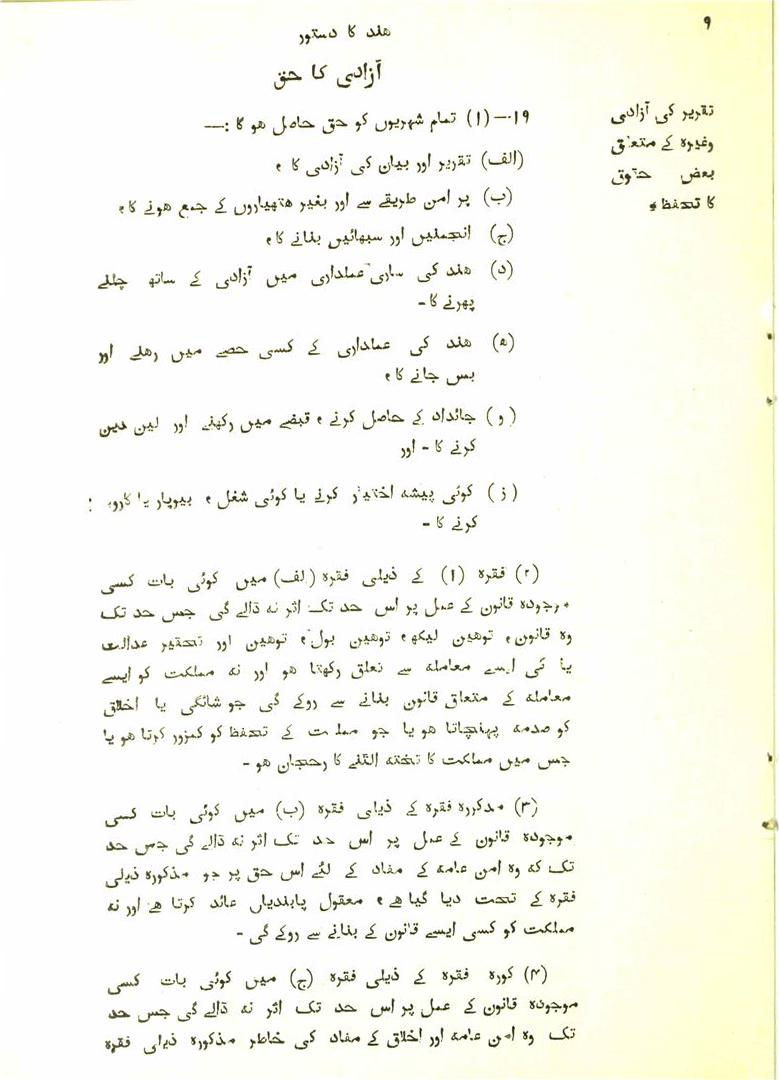 ۹
هند کا دستور
آزادی کا حق
تقریر کی آزادی
وغیرہ کے متعلق
بعض حقوق
کا تحفظ ؞
۱۹۔—(۱) تمام شہریوں کو حق حاصل هو گا :—
(الف) تقریر اور بیان کی آزادی کا ،
(ب) پر امن طریقے سے اور بغیر هتھیاروں کے جمع هونے کا ،
(ج) انجمنیں اور سبھائیں بنانے کا ،
(د) هند کی ساری عملداری میں آزادی کے ساتھ چلنے
پھرنے کا -
(ه) هند کی عملداری کے کسی حصے میں رهنے اور
بس جانے کا ،
(و) جائداد کے حاصل کرنے ، قبضے میں رکھنے اور لین دین
کرنے کا - اور
(ز) کوئی پیشہ اختیار کرنے یا کوئی شغل ، بیوپار یا
کرنے کا -
(۲) فقرہ (۱) کے ذیلی فقرہ (الف) میں کوئی بات کسی
موجودہ قانون کے عمل پر اس حد تک اثر نہ ڈالے گی جس حد تک
وہ قانون ، توهین لیکھ ، توهین بول ، توهین اور تحقیر عدالت
یا ایسے معاملہ سے تعلق رکھتا هو اور نہ مملکت کو ایسے
معاملہ کے متعلق قانون بنانے سے روکے گی جو شائگی یا اخلاق
کو صدمہ پہنچاتا هو یا جو مملکت کے تحفظ کو کمزور کرتا هو یا
جس میں مملکت کا تختہ الٹنے کا رحجان هو -
(۳) مذکورہ فقرہ کے ذیلی فقرہ (ب) میں کوئی بات کسی
موجودہ قانون کے عمل پر اس حد تک اثر نہ ڈالے گی جس حد
تک کہ وہ امن عامہ کے مفاد کے لئے اس حق پر جو مذکورہ ذیلی
فقرہ کے تحت دیا گیا هے ، معقول پابندیاں عائد کرتا هے اور نہ
مملکت کو کسی ایسے قانون کے بنانے سے روکے گی -
(۴) کورہ فقرہ کے ذیلی فقرہ (ج) میں کوئی بات کسی
موجودہ قانون کے عمل پر اس حد تک اثر نہ ڈالے گی جس حد
تک وہ امن عامہ اور اخلاق کے مفاد کی خاطر مذکورہ ذیلی فقرہ